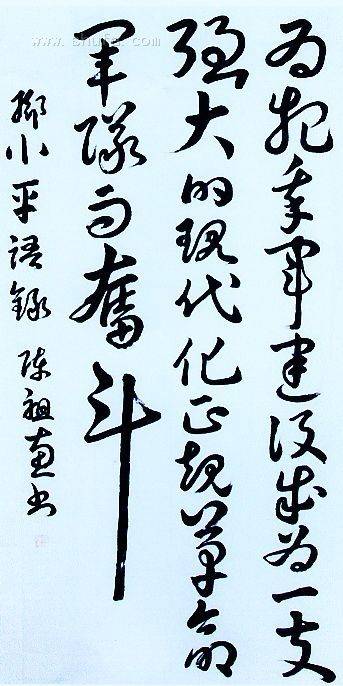 为把我军建设成为一支
强大的现代化正规革命
军队而奋斗
鄧小平語録 陈祖书